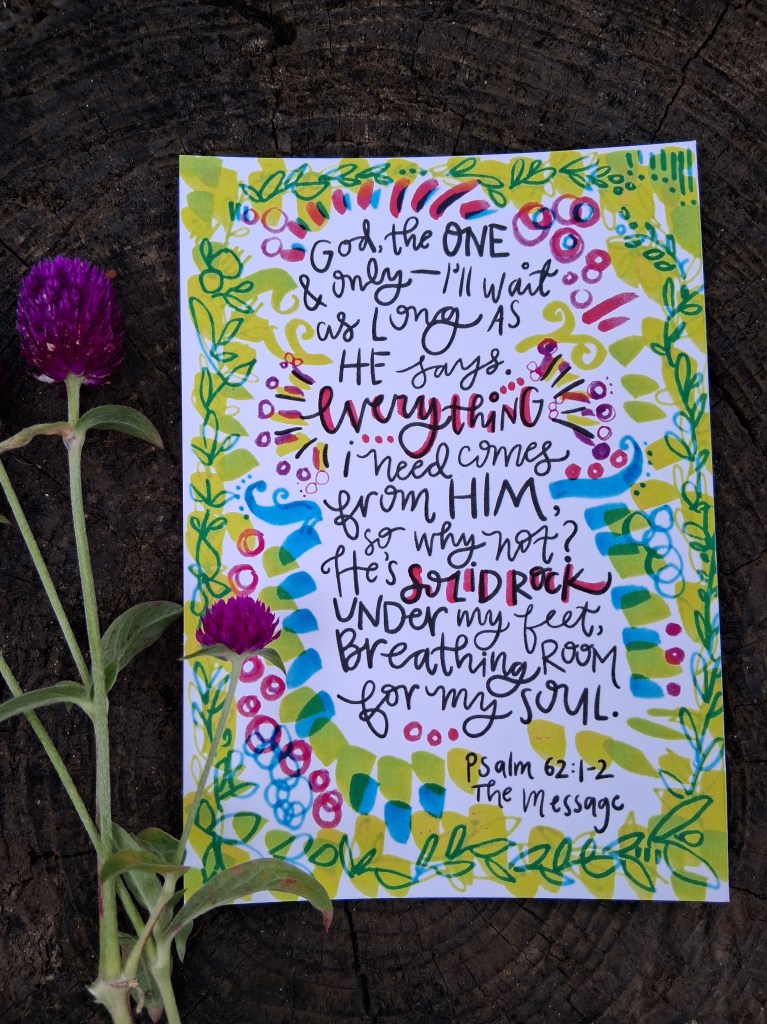 God, the ONE
& only—I'll wait
as Long AS
HE says.
everythiNG
i need comes
from HIM,
so why not?
He's SOLID ROCK
UNDER my feet,
Breathing ROOM
for my SOUL.
Psalm 62:1-2
The Message